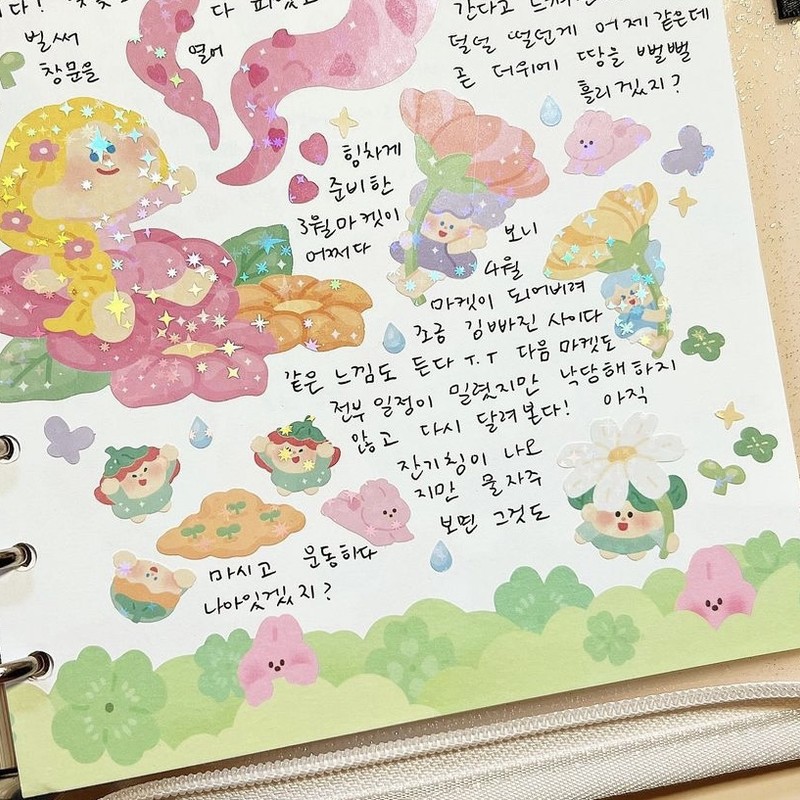 다 피었
벌써
열어
창문을
덜덜 떨던게 어제같은데
곧 더위에 땀을 뻘뻘
흘리겠지?
힘차게
준비한
3월마켓이
어쩌다
보니
4월
마켓이 되어버려
조금 김빠진 사이다
같은 느낌도 든다 T.T 다음 마켓도
전부 일정이 밀렸지만 낙담해하지
않고 다시 달려본다! 아직
잔기침이 나오
지만 물자주
마시고 운동하다
보면 그것도
나아있겠지?